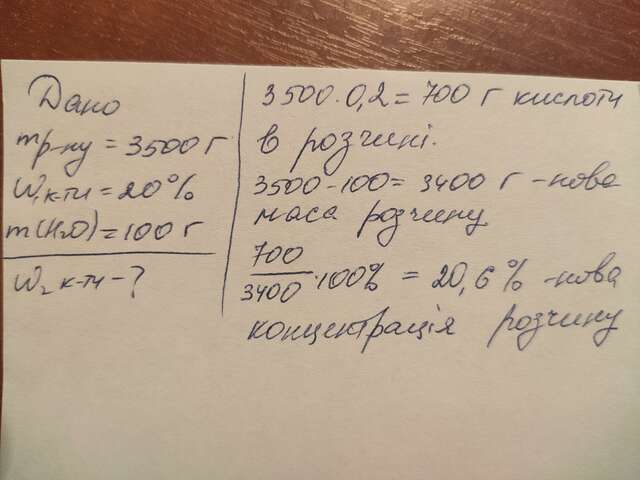 Дано
mр-ну = 3500 г
W₁к-ти = 20%
m(H₂O) = 100 г
W₂ к-ти - ?
3500 · 0,2 = 700 г кислоти
в розчині.
3500 - 100 = 3400 г - нова
маса розчину
700
3400 · 100% = 20,6% - нова
концентрація розчину